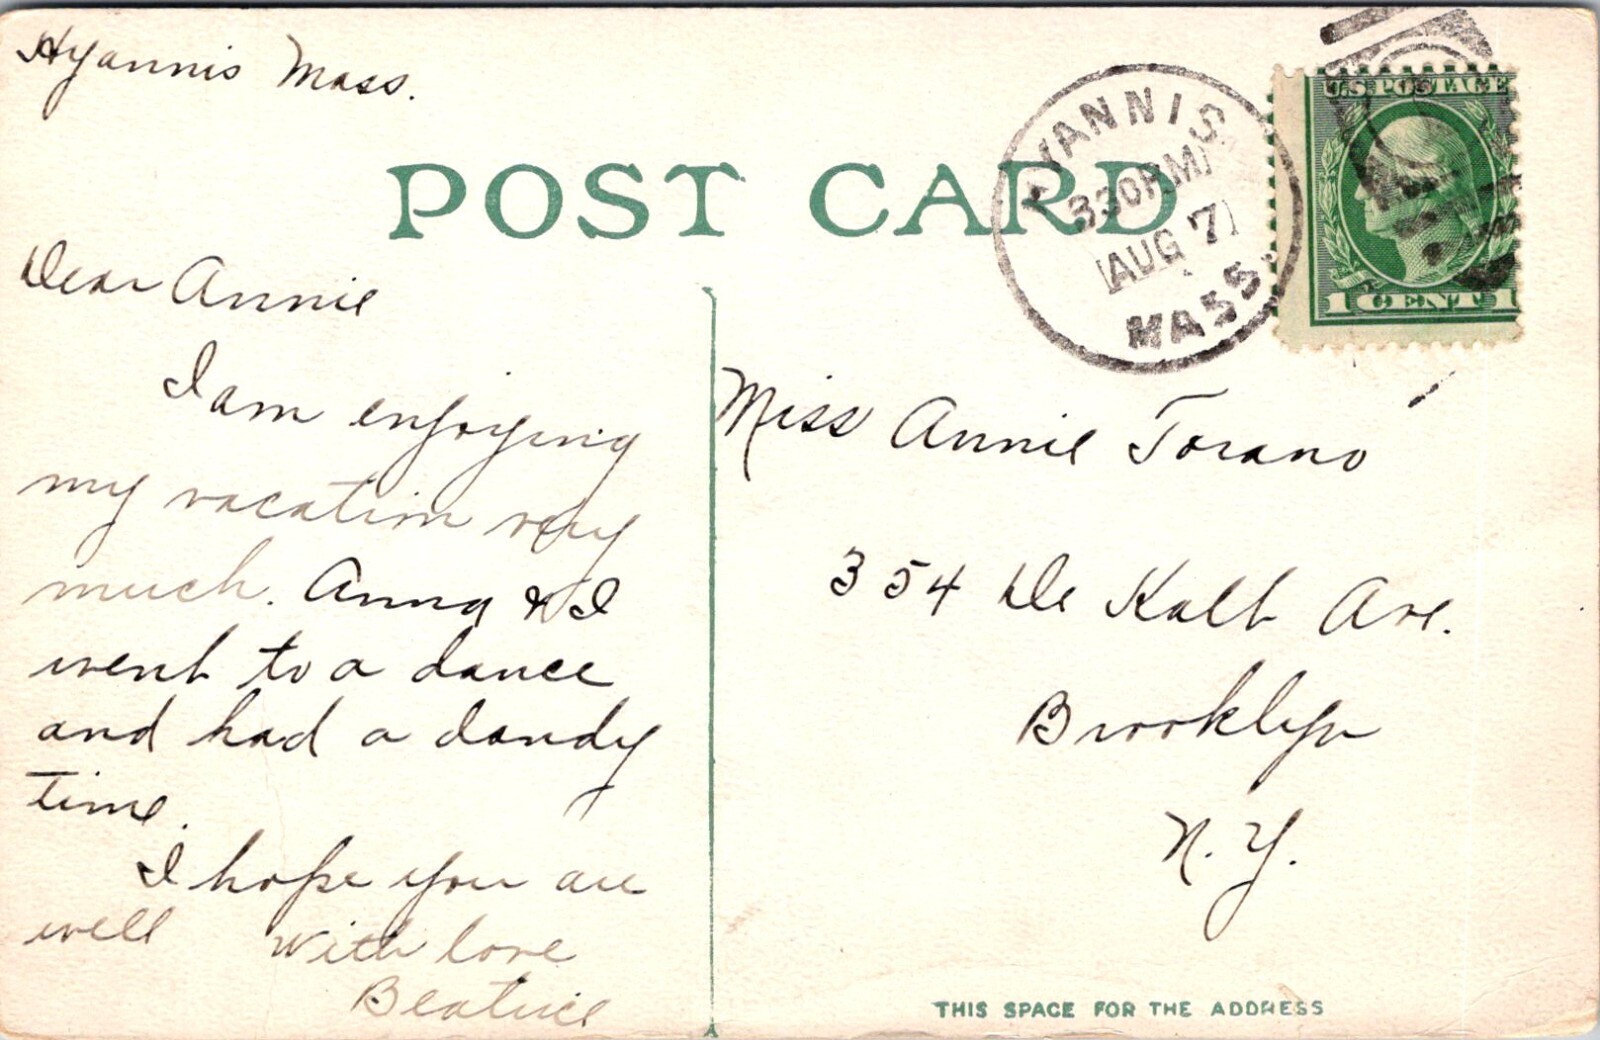 Hyannis Mass.
POST CARD
HYANNIS
330PM
AUG 7
MASS.
U.S. POSTAGE
1 CENT 1
Dear Annie
I am enjoying
my vacation very
much. Anna & I
went to a dance
and had a dandy
time.
I hope you are
well with love
Beatrice
Miss Annie Torano
354 De Kalb Ave.
Brooklyn
N. Y.
THIS SPACE FOR THE ADDRESS